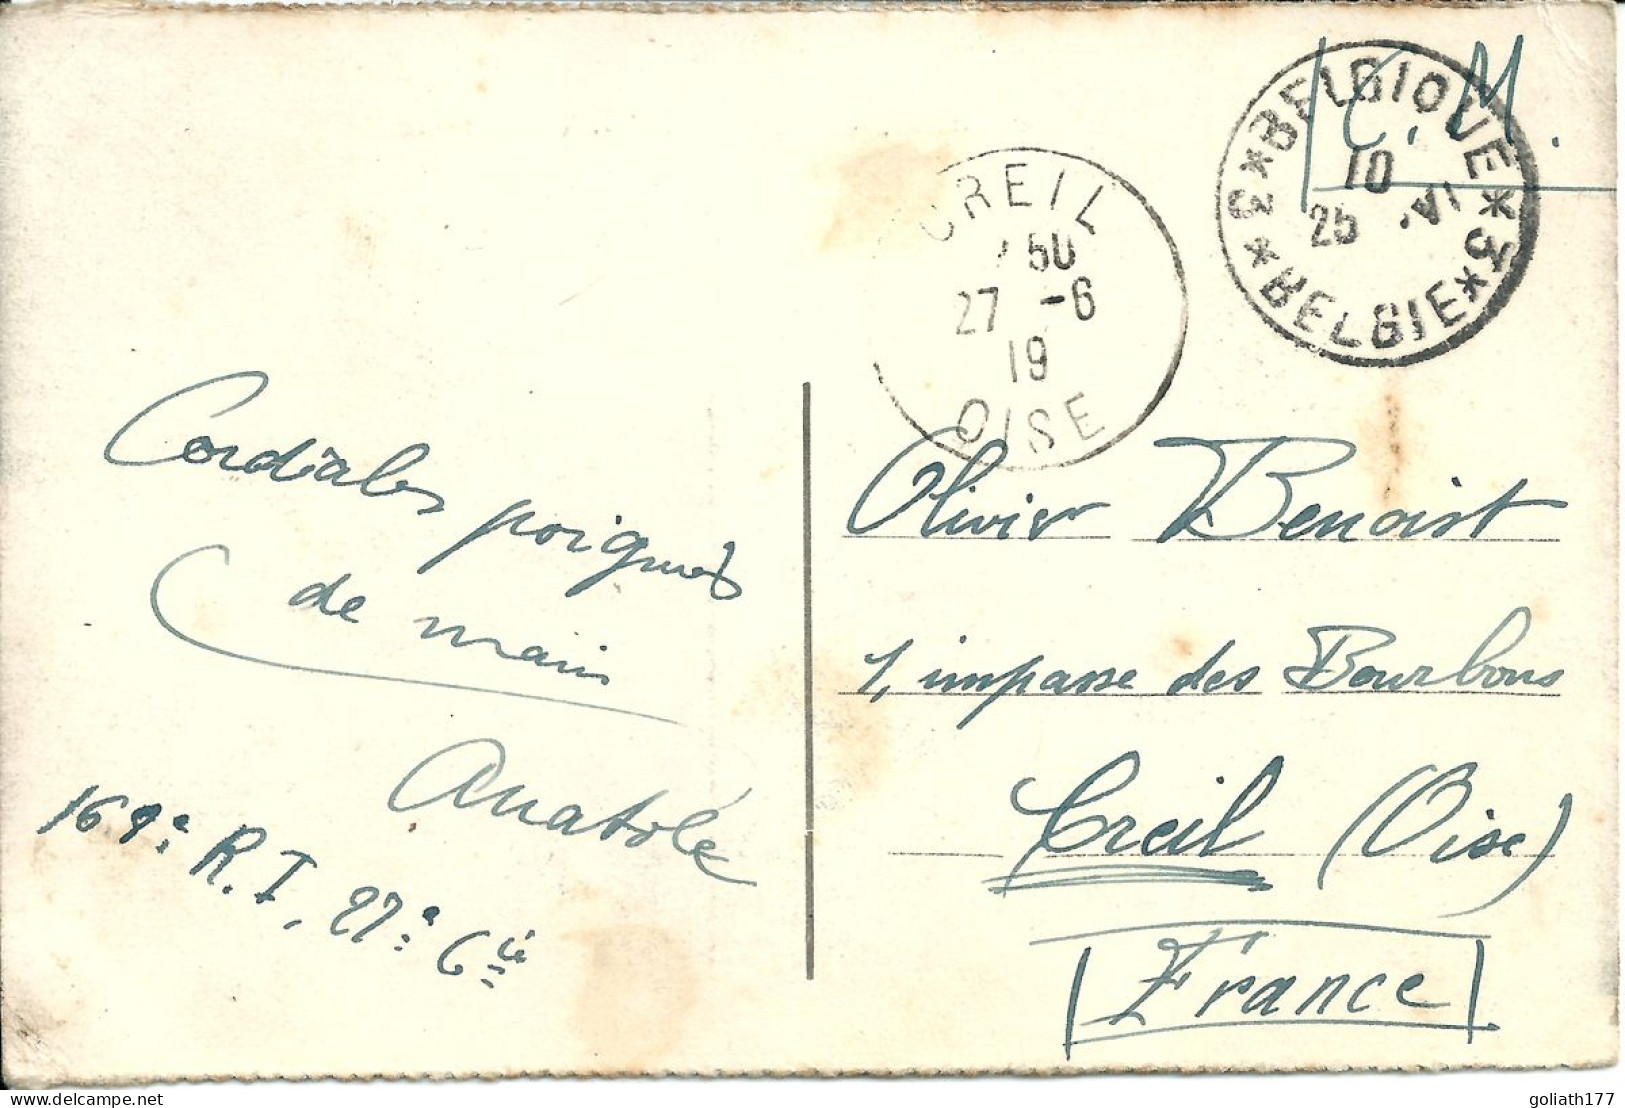 F.M.
*BELGIQUE*3*
10
25 VI.
3*BELGIE*
CREIL
50
27 -6
19
OISE
Cordiales poignées
de main
Anatole
169e R.I. 27e Cie
Olivier Benoist
1, impasse des Bourbons
Creil (Oise)
France
goliath177